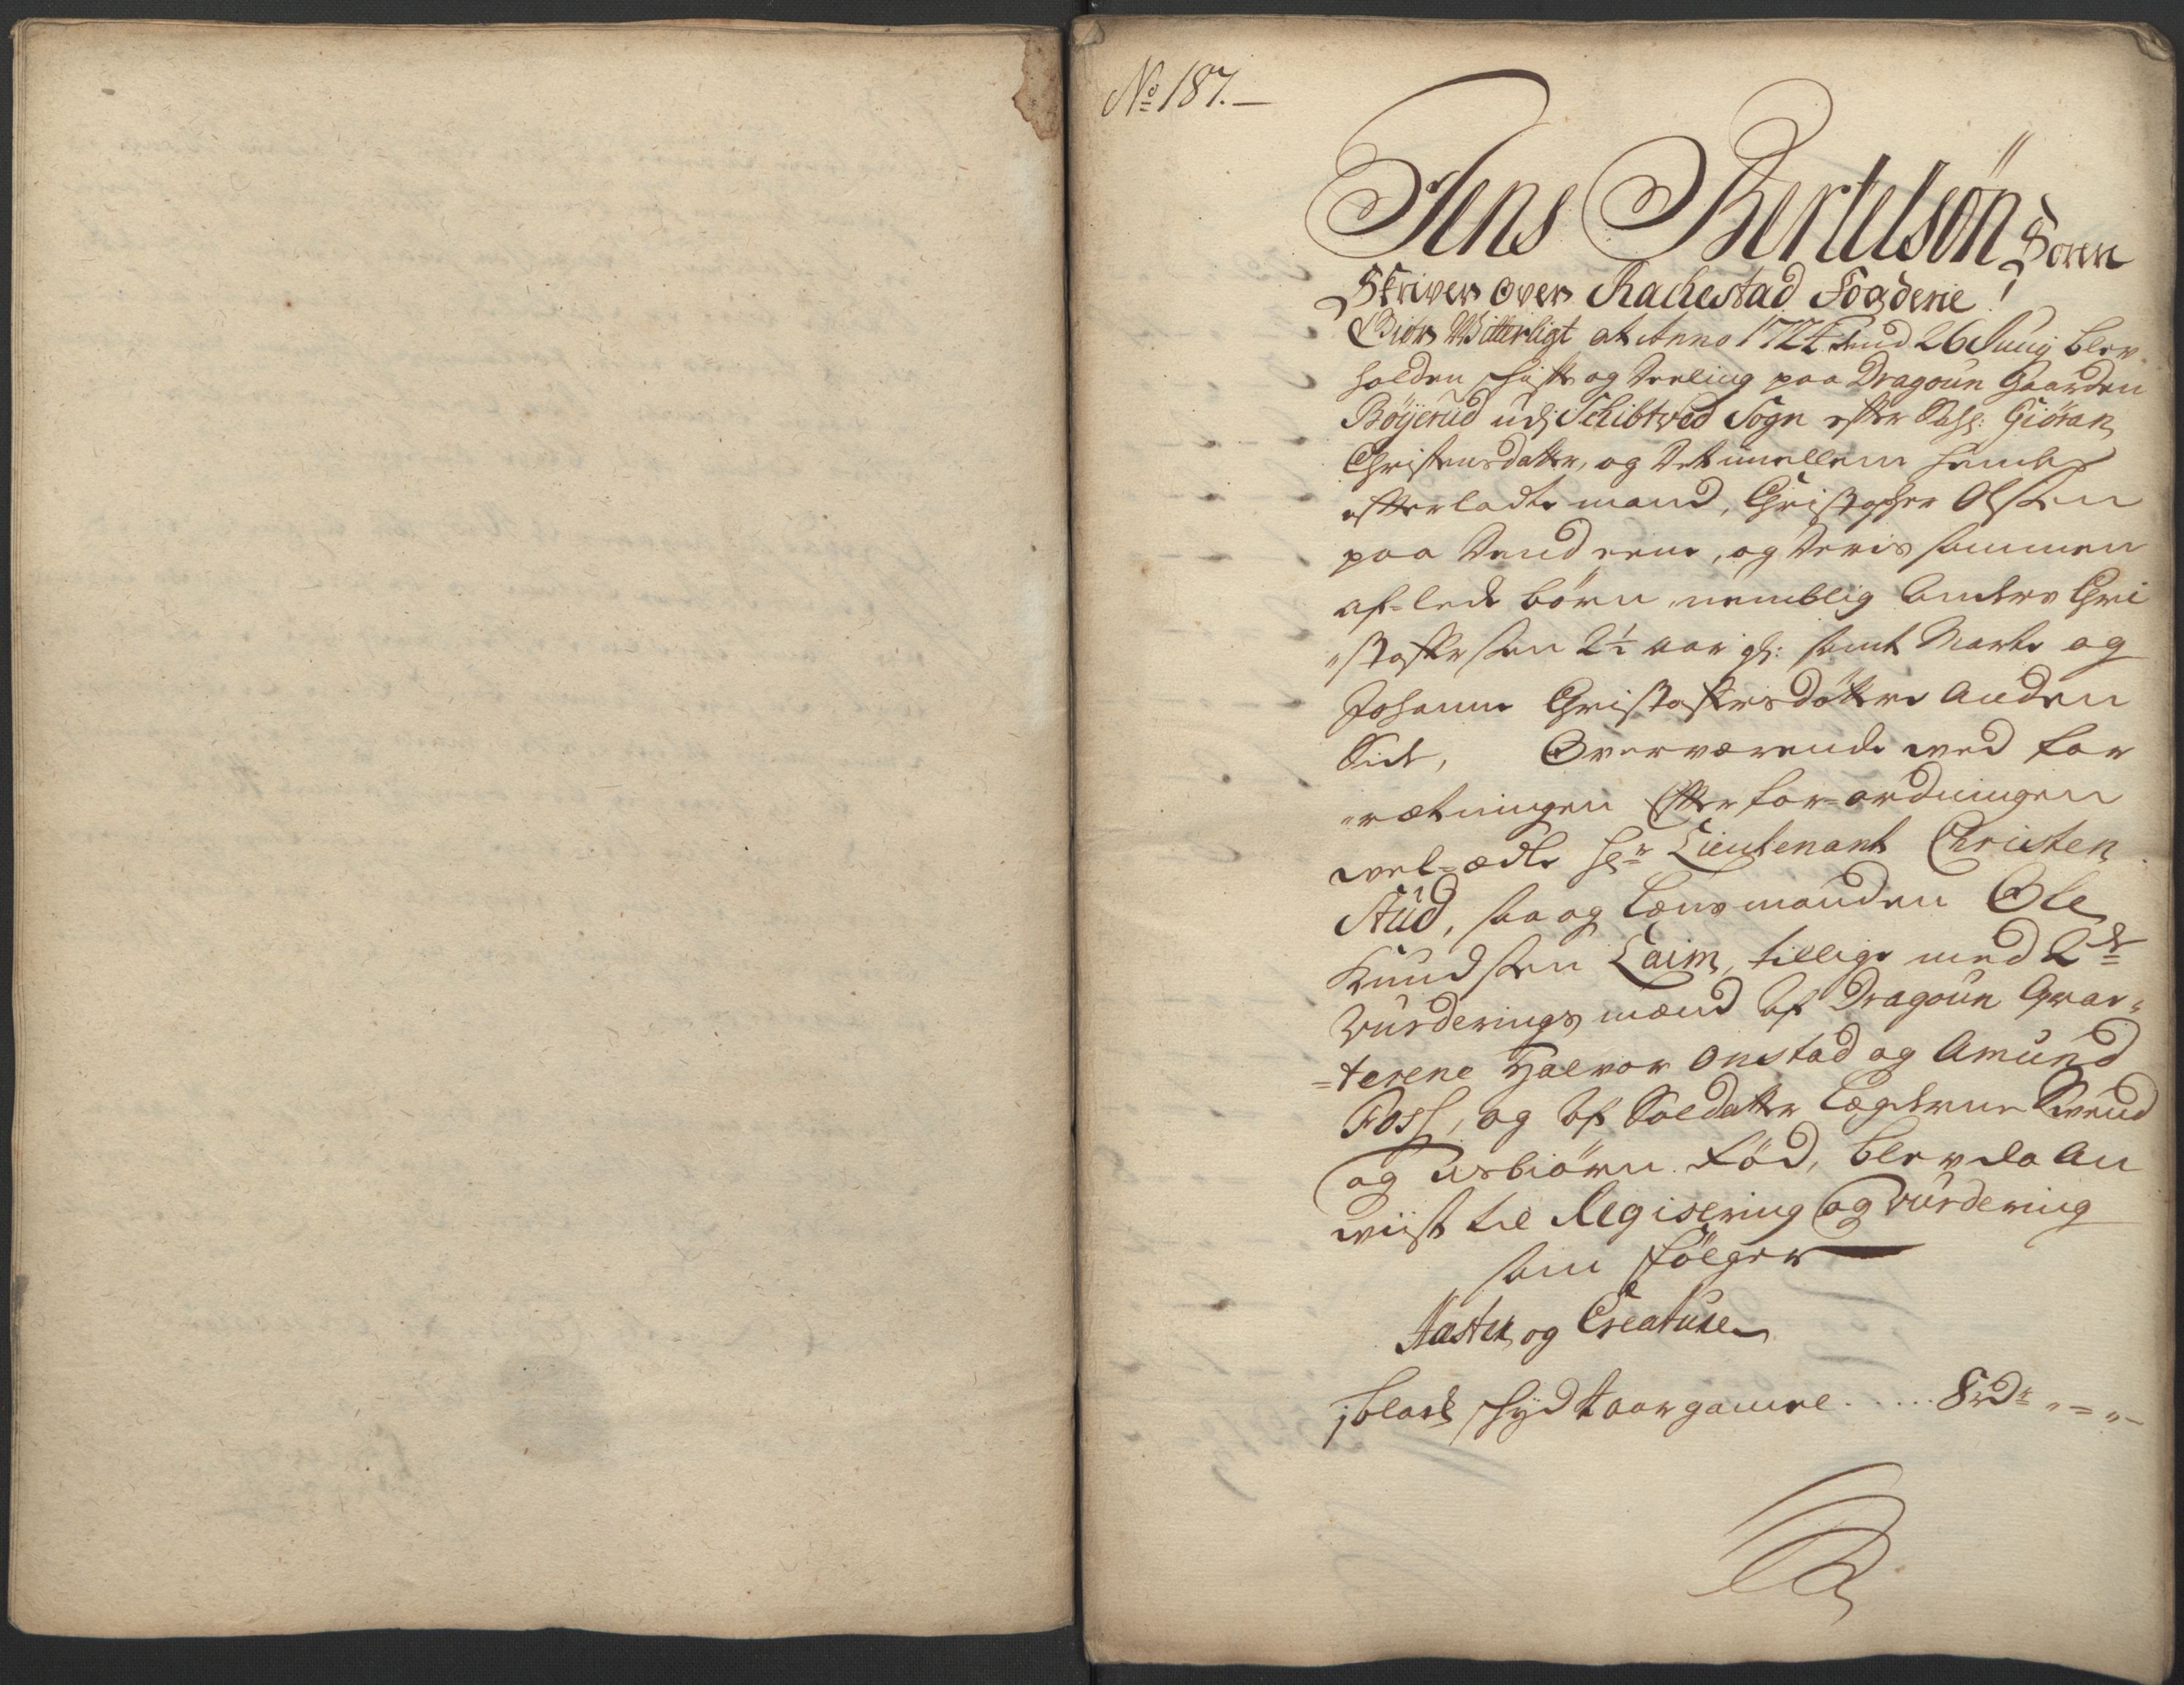 No 187.
Jens Bertelsön Soren
Skriver over Rachestad Fogderie!
Giör Witterligt at Anno 1724 dend 26 Junij blev
holden skifte og deeling paa Dragoun Gaarden
Böyerud udj Schibtved Sogn efter Sahl: Giöran
Christensdatter, og det imellem hendes
efterladte mand, Christopher Olssen
paa dend eene, og deris sammen
af-lede börn nemblig Anders Chri
"stoffersen 2½ aar gl: samt Marte og
Johanne Christoffersdöttre anden
Side, Overværende ved for
"rætningen efter for-ordningen
wel-ædle Hr Lieutenant Christen
Stud, saa og Lænsmanden Ole
Knudsen Laim, tillige med 2de
Vurderings mænd af Dragoun Qvar-
=terene Halvor Onstad og Amund
Foss, og af Soldatter Lægderne Svend
og Asbiörn Föd, blev da An
wiist til Registering og vurdering
som fölger
Hæster og Creature
1 blach hyd 4 aar gamel ..... 8 rdr " = " -